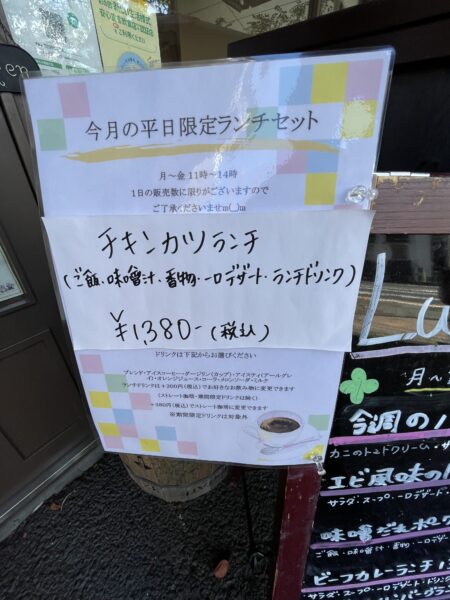 今月の平日限定ランチセット
月〜金 11時〜14時
1日の販売数に限りがございますので
ご了承くださいませm(__)m
チキンカツランチ
(ご飯、味噌汁、香物、一口デザート、ランチドリンク)
¥1,380-(税込)
ドリンクは下記からお選びください
ブレンド・アイスコーヒー・ダージリン(カップ)・アイスティ(アールグレ
イ)・オレンジジュース・コーラ・メロンソーダ・ミルク
ランチドリンクは+200円(税込)でお好きなお飲み物に変更できます
(ストレート珈琲・期間限定ドリンクは除く)
+380円(税込)でストレート珈琲に変更できます
※期間限定ドリンクは対象外
月〜
今週の
カニのトマトクリーム
エビ風味の
サラダ・スープ・一口デザート
味噌だれポーク
ご飯・味噌汁・香物・
ビーフカレーランチ
サラダ・スープ・一口デザート・ドリンク